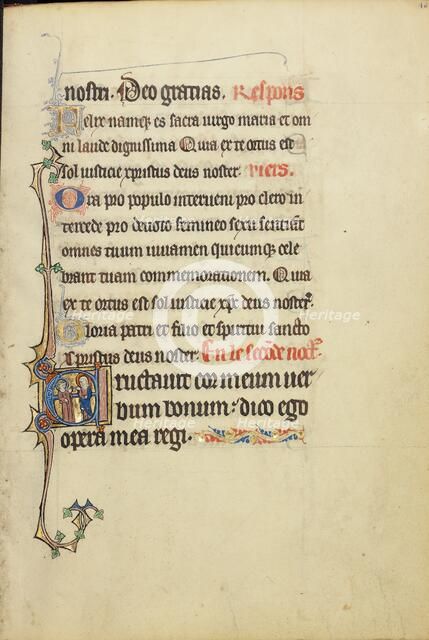 nostri. Deo gratias. Respons
Felix namq; es sacra uirgo maria et om
ni laude dignissima Quia ex te ortus est
sol iusticie xpistus deus noster. vers.
Ora pro populo interueni pro clero in
tercede pro deuoto femineo sexu senciant
omnes tuum iuuamen quicumq; cele
brant tuam commemorationem. Quia
ex te ortus est sol iusticie xp̄c deus noster.
Gloria patri et filio et spiritui sancto
xpistus deus noster. En le secōde noct̄.
Eructauit cor meum uer
bum bonum: dico ego
opera mea regi.
Heritage
Heritage
Heritage
Heritage
Heritage
Heritage